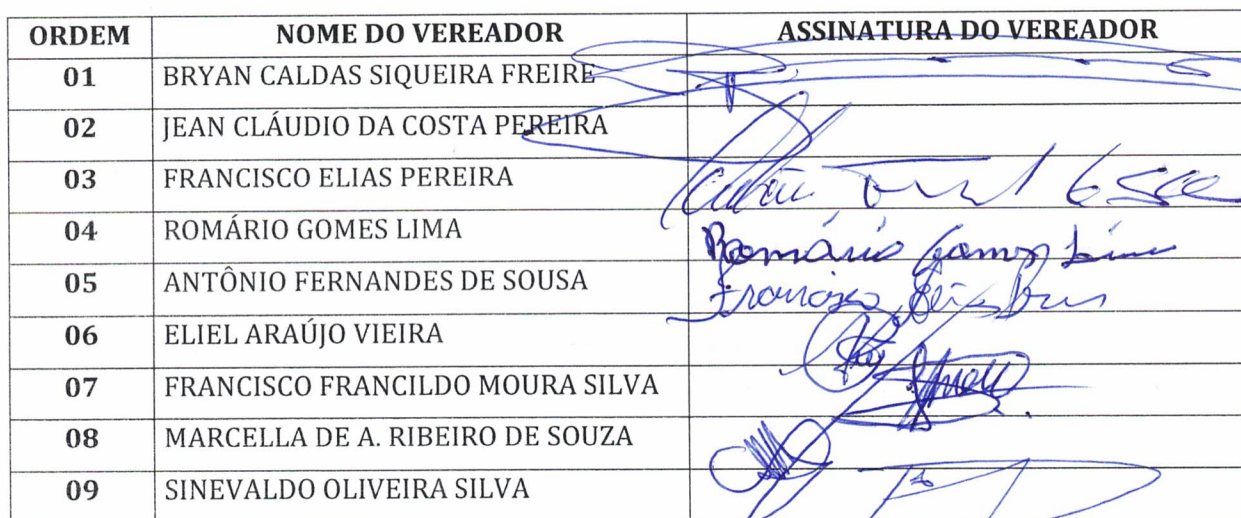 ORDEM NOME DO VEREADOR ASSINATURA DO VEREADOR
01 BRYAN CALDAS SIQUEIRA FREIRE
02 JEAN CLÁUDIO DA COSTA PEREIRA
03 FRANCISCO ELIAS PEREIRA
04 ROMÁRIO GOMES LIMA Romário Gomes Lima
05 ANTÔNIO FERNANDES DE SOUSA Francisco
06 ELIEL ARAÚJO VIEIRA
07 FRANCISCO FRANCILDO MOURA SILVA
08 MARCELLA DE A. RIBEIRO DE SOUZA
09 SINEVALDO OLIVEIRA SILVA